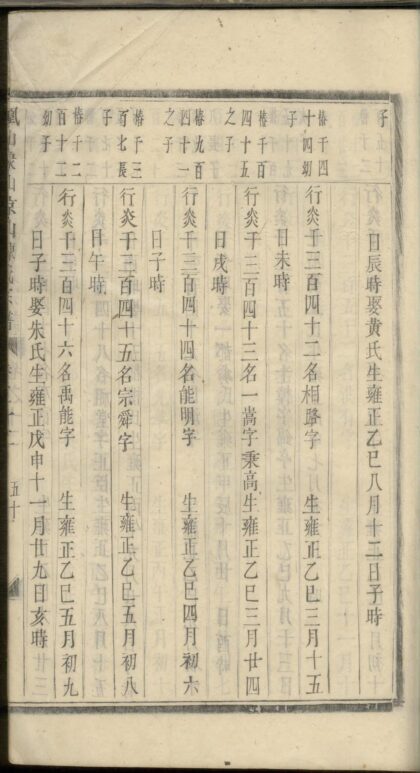 子
日辰時娶黃氏生雍正乙巳八月十二日子時
椿千四
十四幼
子
行炎千三百四十二名相路字　生雍正乙巳三月十五
日未時
椿千百
四十五
之子
行炎千三百四十三名一嵩字秉高生雍正乙巳三月廿四
日戌時
椿九百
四十一
之子
行炎千三百四十四名能明字　生雍正乙巳四月初六
日子時
椿千三
百七長
子
行炎千三百四十五名宗舜字　生雍正乙巳五月初八
日午時
椿千二
百十二
幼子
行炎千三百四十六名禹能字　生雍正乙巳五月初九
日子時娶朱氏生雍正戊申十一月廿九日亥時
五十